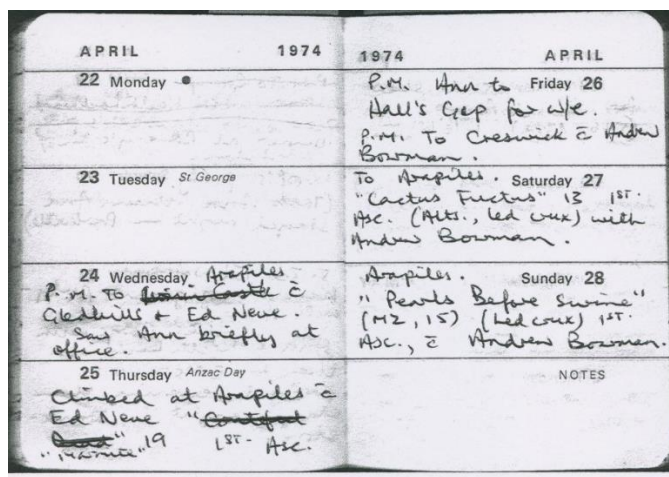 APRIL 1974
22 Monday
23 Tuesday St George
24 Wednesday Arapiles
P.M. To c̄
Gledhills + Ed Neve.
Saw Ann briefly at
office.
25 Thursday Anzac Day
Climbed at Arapiles c̄
Ed Neve
19 1ST. Asc.
1974 APRIL
P.M. Ann to Friday 26
Hall's Gap for w/e.
P.M. To Creswick c̄ Andrew
Bowman.
To Arapiles. Saturday 27
"Cactus Fuctus" 13 1ST.
Asc. (Alts., led crux) with
Andrew Bowman.
Arapiles. Sunday 28
"Pearls Before Swine"
(M2, 15) (led crux) 1ST.
Asc., c̄ Andrew Bowman.
NOTES